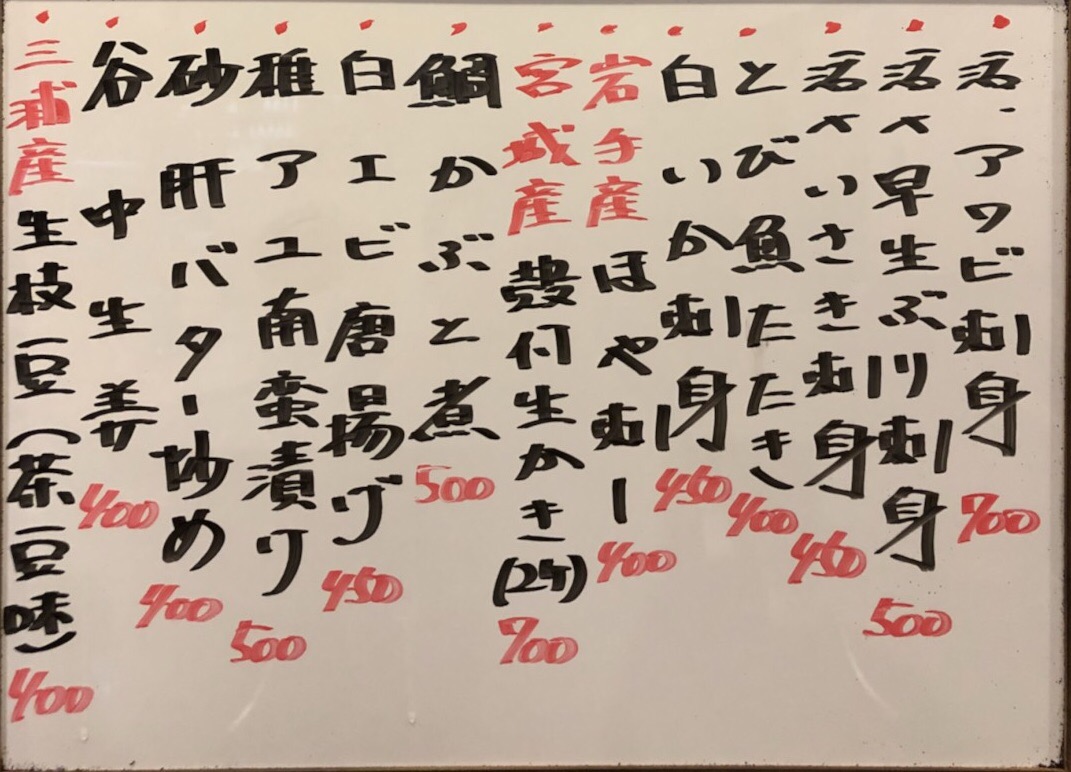 活・アワビ刺身 700
活〆早生ぶり刺身 500
活〆いさき刺身 450
とび魚たたき 400
白いか刺身 450
岩手産ほや刺し 400
宮城産殻付生かき(2ケ) 700
鯛かぶと煮 500
白エビ唐揚げ 450
稚アユ南蛮漬け 500
砂肝バター炒め 400
谷中生姜 400
三浦産生枝豆(茶豆味) 400